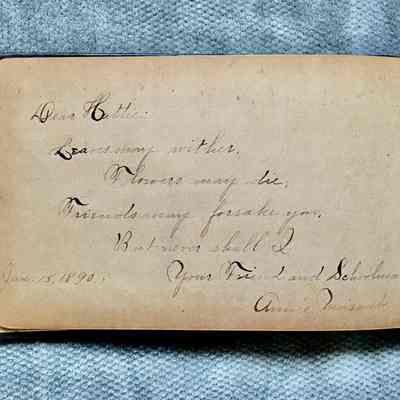 Dear Hattie:
Leaves may wither,
Flowers may die,
Friends may forsake you,
But never shall I
Jan. 15, 1890. Your Friend and Schoolma
Annie